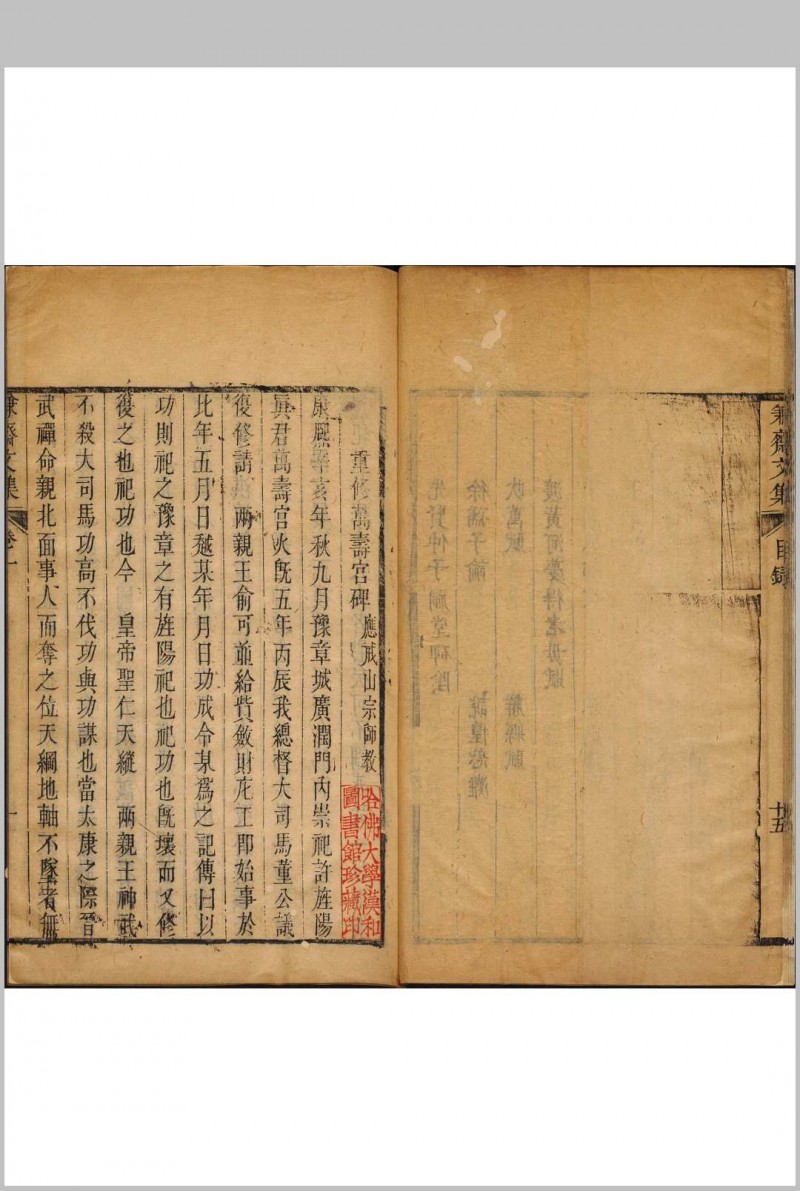 兼齋文集
目錄
十五
重修萬壽宮碑 應戒山宗師教
康熙辛亥年秋九月豫章城廣潤門內崇祀許旌陽
眞君萬壽宮火旣五年丙辰我總督大司馬董公議
復修請 兩親王俞可並給貲斂財庀工卽始事於
比年五月日越某年月日功成令某爲之記傳曰以
功則祀之豫章之有旌陽祀也祀功也旣壞而又修
復之也祀功也今 皇帝聖仁天縱 兩親王神武
不殺大司馬功高不伐功與功謀也當太康之際晉
武禪命親北面事人而奪之位天綱地軸不墜者無
兼齋文集
卷一
一
哈佛大學漢和
圖書館珍藏印